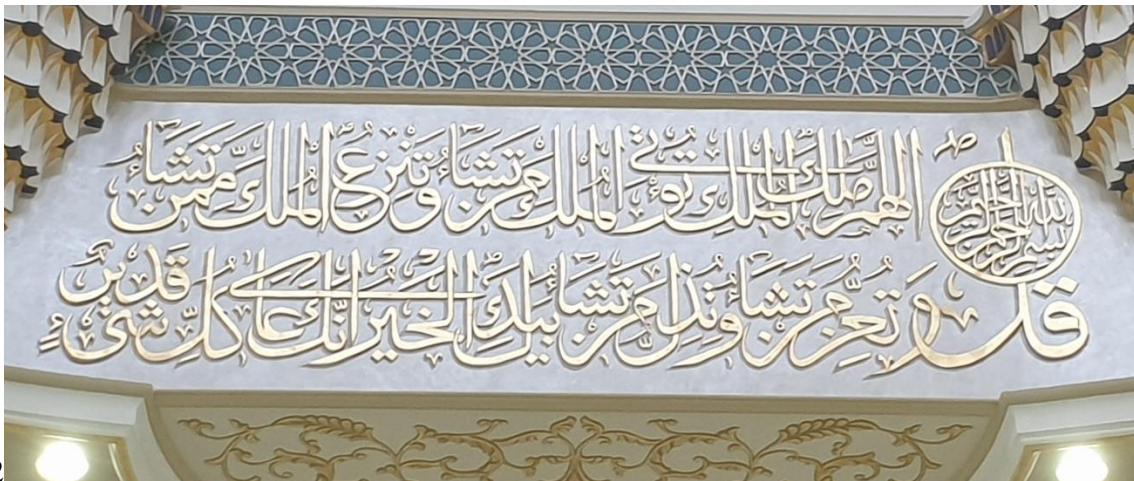 بسم الله الرحمن الرحيم
قل اللهم ملك الملك تؤتي الملك من تشاء وتنزع الملك ممن تشاء
وتعز من تشاء وتذل من تشاء بيدك الخير انك على كل شيء قدير